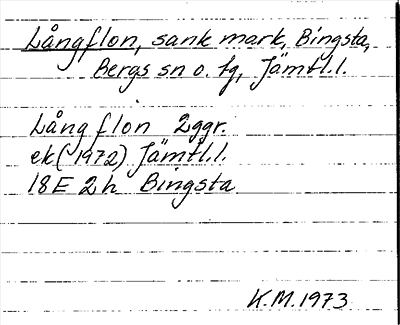 Långflon, sank mark, Bingsta,
Bergs sn o. tg, Jämtl.l.
Långflon 2ggr.
ek (1972) Jämtl.l.
18E 2h Bingsta
K.M.1973